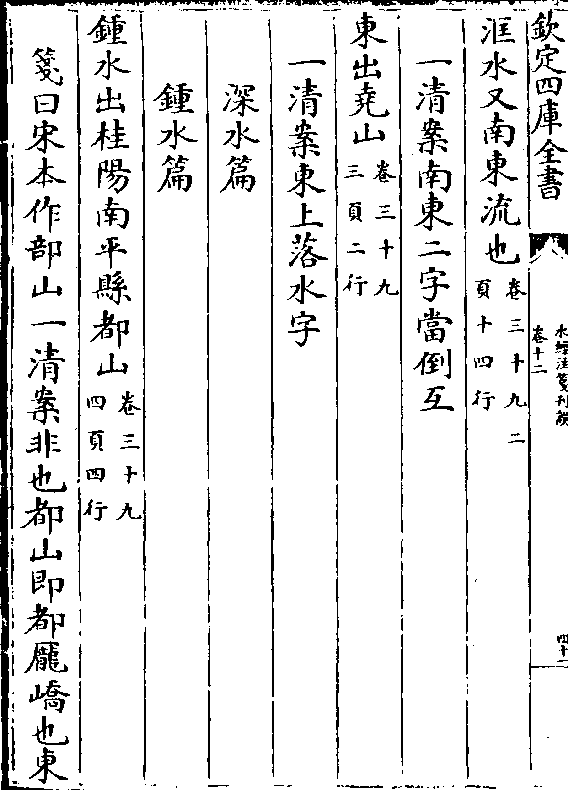 欽定四庫全書
水經注箋刊誤
卷十二
四十二
洭水又南東流也卷三十九二頁十四行
一清案南東二字當倒互
東出堯山卷三十九三頁二行
一清案東上落水字
深水篇
鍾水篇
鍾水出桂陽南平縣都山卷三十九四頁四行
箋曰宋本作部山一清案非也都山即都龐嶠也東